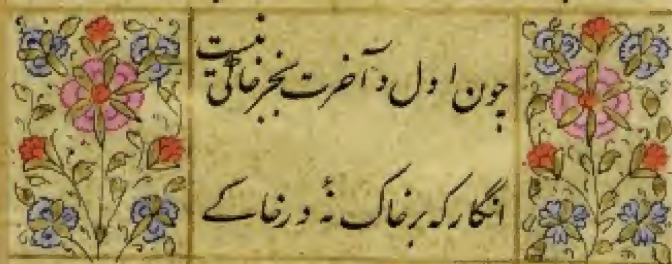 چون اول و آخرت بجز خاکی نیست
انگار که بر خاک نهٔ در خاکے